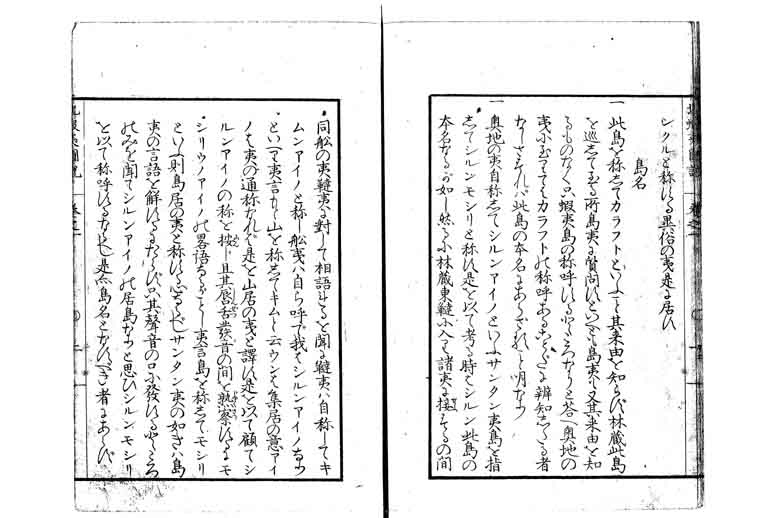 シクルと称する異俗の夷是に居す
島名
一 此島を称してカラフトといふこと其来由を知らず林蔵此島
を巡して至る所島夷に質問すといへども島夷も又其来由を知
るものなく只蝦夷島の称呼するところなりと答 奥地の
夷に至てはカラフトの称呼あることだに辨知したる者
なしされば此島の本名にあらざること明なり
一 奥地の夷自称してシルンアイノといふサンタン夷島を指
してシルンモシリと称す是を以て考る時はシルン此島の
本名なるが如し然るに林蔵東韃に入て諸夷に接するの間
同船の夷韃夷に対して相語するを聞に韃夷は自称してキ
ムンアイノと称し船夷は自ら呼で我はシルンアイノなり
といへり夷言に山を称してキムと云ウンは集居の意アイ
ノは夷の通称なれば是を山居の夷と譯す是を以て顧てシ
ルンアイノの称を按し且其唇舌發音の間を熟察するにモ
シリウンアイノの畧語なるべし夷言島を称してモシリ
といへば則島居の夷と称する心なるべしサンタン夷の如きは島
夷の言語を解するにあらず只其聲音の口に發するところ
のみを聞てシルンアイノの居島なりと思ひシルンモシリ
を以て称呼するなるべし是亦島名となすべき者にあらず
北蝦夷圖説 巻之一